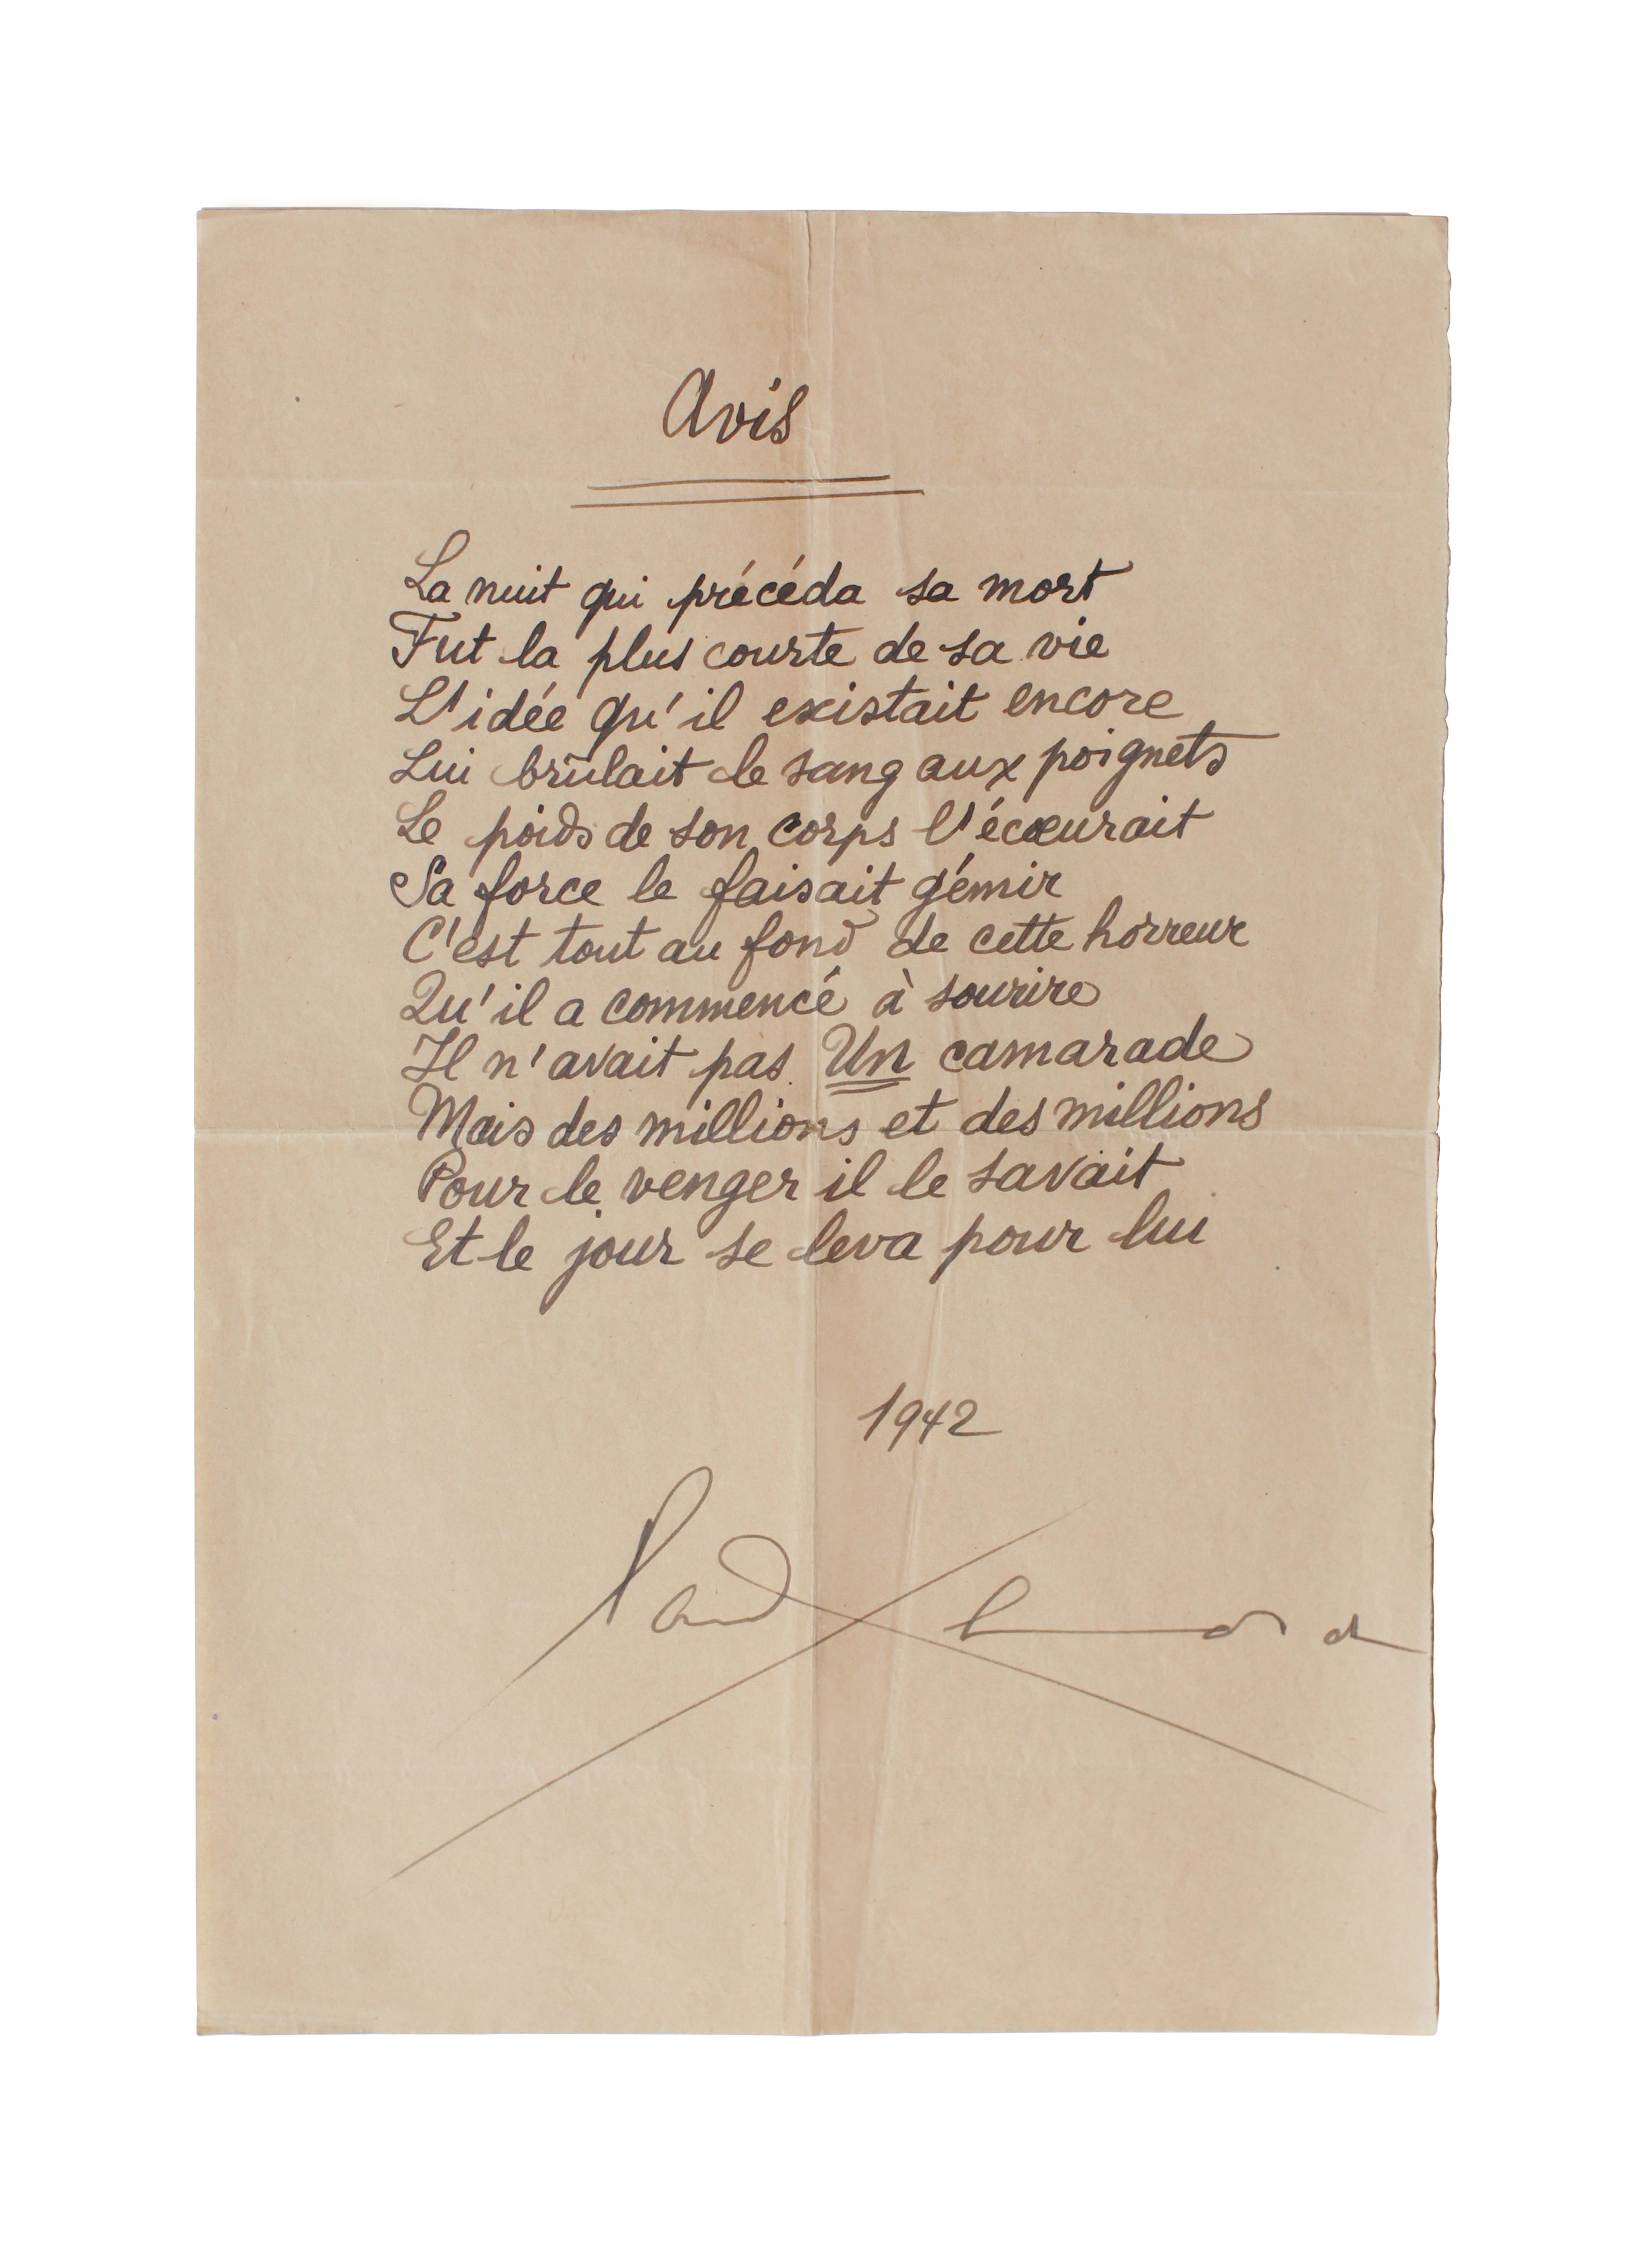 Avis
La nuit qui précéda sa mort
Fut la plus courte de sa vie
L'idée qu'il existait encore
Lui brûlait le sang aux poignets
Le poids de son corps l'écœurait
Sa force le faisait gémir
C'est tout au fond de cette horreur
Qu'il a commencé à sourire
Il n'avait pas Un camarade
Mais des millions et des millions
Pour le venger il le savait
Et le jour se leva pour lui
1942
Paul Eluard